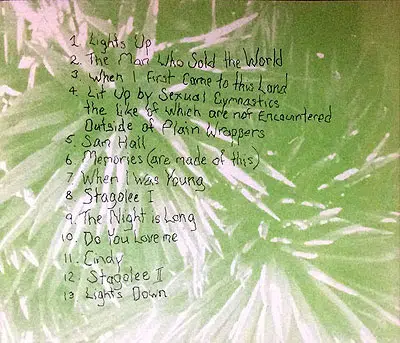 1. Lights Up
2. The Man Who Sold the World
3. When I First Came to this Land
4. Lit Up by Sexual Gymnastics
the like of which are not Encountered
Outside of Plain Wrappers
5. Sam Hall
6. Memories (are made of this)
7. When I was Young
8 Stagolee I
9. The Night is Long
10. Do You Love me
11. Cindy
12. Stagolee II
13 Lights Down